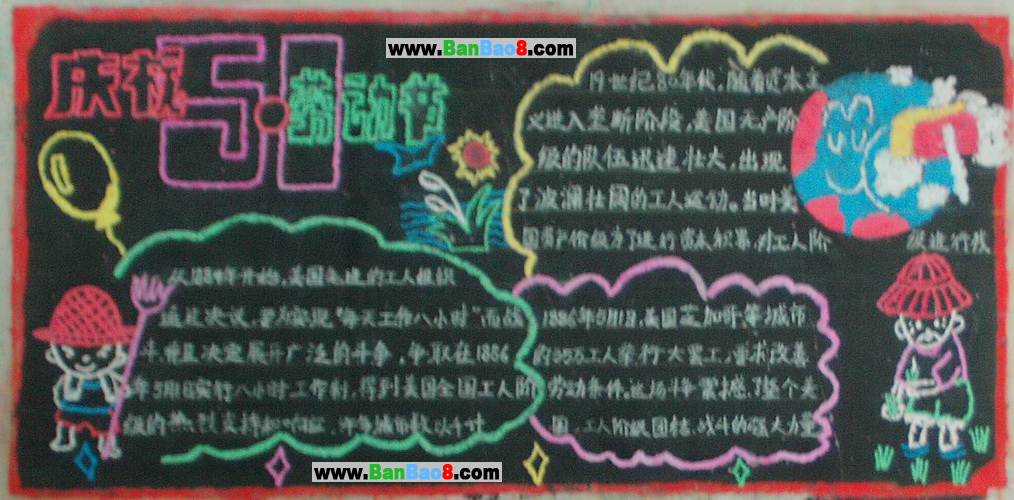 www.BanBao8.com
庆祝5.1劳动节
19世纪80年代,随着资本主
义进入垄断阶段,美国无产阶
级的队伍迅速壮大,出现
了波澜壮阔的工人运动。当时美
国资产阶级为了进行资本积累,对工人阶 级进行残
从1884年开始,美国先进的工人组织
通过决议,要为实现"每天工作八小时"而战
斗,并且决定展开广泛的斗争,争取在1886
年5月1日实行八小时工作制,得到美国全国工人阶
级的热烈支持和响应,许多城市数以千计
1886年5月1日,美国芝加哥等城市
的35万工人举行大罢工,要求改善
劳动条件。这场斗争震撼了整个美
国。工人阶级团结战斗的强大力量
www.BanBao8.com